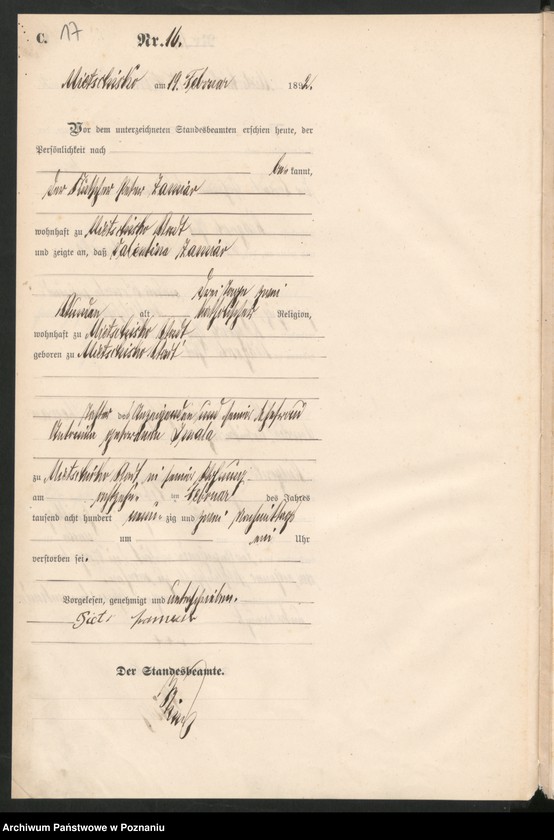 C. 17 Nr. 16.
Mietschisko am 19. Februar 1892.
Vor dem unterzeichneten Standesbeamten erschien heute, der
Persönlichkeit nach
be kannt,
der Peter Zamiar
wohnhaft zu Mietschisko Stadt
und zeigte an, daß Valentina Zamiar
drei Tage zwei
Stunden alt katholischer Religion,
wohnhaft zu Mietschisko Stadt
geboren zu Mietschisko Stadt
Tochter des Anzeigenden und seiner Ehefrau
Antonina geborenen
zu Mietschisko Stadt in seiner Wohnung
am ten Februar des Jahres
tausend acht hundert neun zig und zwei Nachmittags
um ein Uhr
verstorben sei.
Vorgelesen, genehmigt und unterschrieben.
Piotr
Der Standesbeamte.
Archiwum Państwowe w Poznaniu